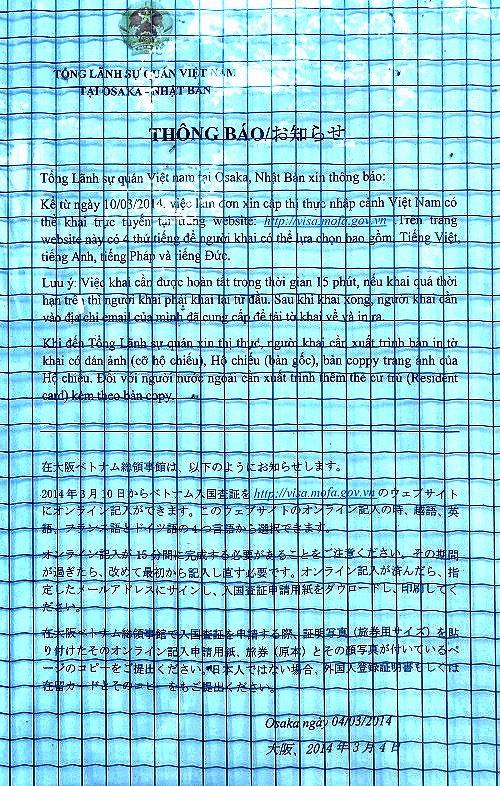 TỔNG LÃNH SỰ QUÁN VIỆT NAM
TẠI OSAKA - NHẬT BẢN
THÔNG BÁO/お知らせ
Tổng Lãnh sự quán Việt nam tại Osaka, Nhật Bản xin thông báo:
Kể từ ngày 10/03/2014, việc làm đơn xin cấp thị thực nhập cảnh Việt Nam có
thể khai trực tuyến tại trang website: http://visa.mofa.gov.vn. Trên trang
website này có 4 thứ tiếng để người khai có thể lựa chọn bao gồm: Tiếng Việt,
tiếng Anh, tiếng Pháp và tiếng Đức.
Lưu ý: Việc khai cần được hoàn tất trong thời gian 15 phút, nếu khai quá thời
hạn trê thì người khai phải khai lại từ đầu. Sau khi khai xong, người khai cần
vào địa chỉ email của mình đã cung cấp để tải tờ khai về và in ra.
Khi đến Tổng Lãnh sự quán xin thị thực, người khai cần xuất trình bản in tờ
khai có dán ảnh (cỡ hộ chiếu), Hộ chiếu (bản gốc), bản coppy trang ảnh của
Hộ chiếu. Đối với người nước ngoài cần xuất trình thêm thẻ cư trú (Resident
card) kèm theo bản copy.
在大阪ベトナム総領事館は、以下のようにお知らせします。
2014年3月10日からベトナム入国査証を http://visa.mofa.gov.vn のウェブサイト
にオンライン記入ができます。このウェブサイトのオンライン記入の時、越語、英
語、フランス語とドイツ語の4つ言語から選択できます。
オンライン記入が15分間に完成する必要があることをご注意ください。その期間
が過ぎたら、改めて最初から記入し直す必要です。オンライン記入が済んだら、指
定したメールアドレスにサインし、入国査証申請用紙をダウロードし、印刷してく
ださい。
在大阪ベトナム総領事館で入国査証を申請する際、証明写真（旅券用サイズ）を貼
り付けたそのオンライン記入申請用紙、旅券（原本）とその顔写真が付いているペ
ージのコピーをご提出ください。日本人ではない場合、外国人登録証明書もしくは
在留カードとそのコピーをもご提出ください。
Osaka ngày 04/03/2014
大阪、2014年3月4日